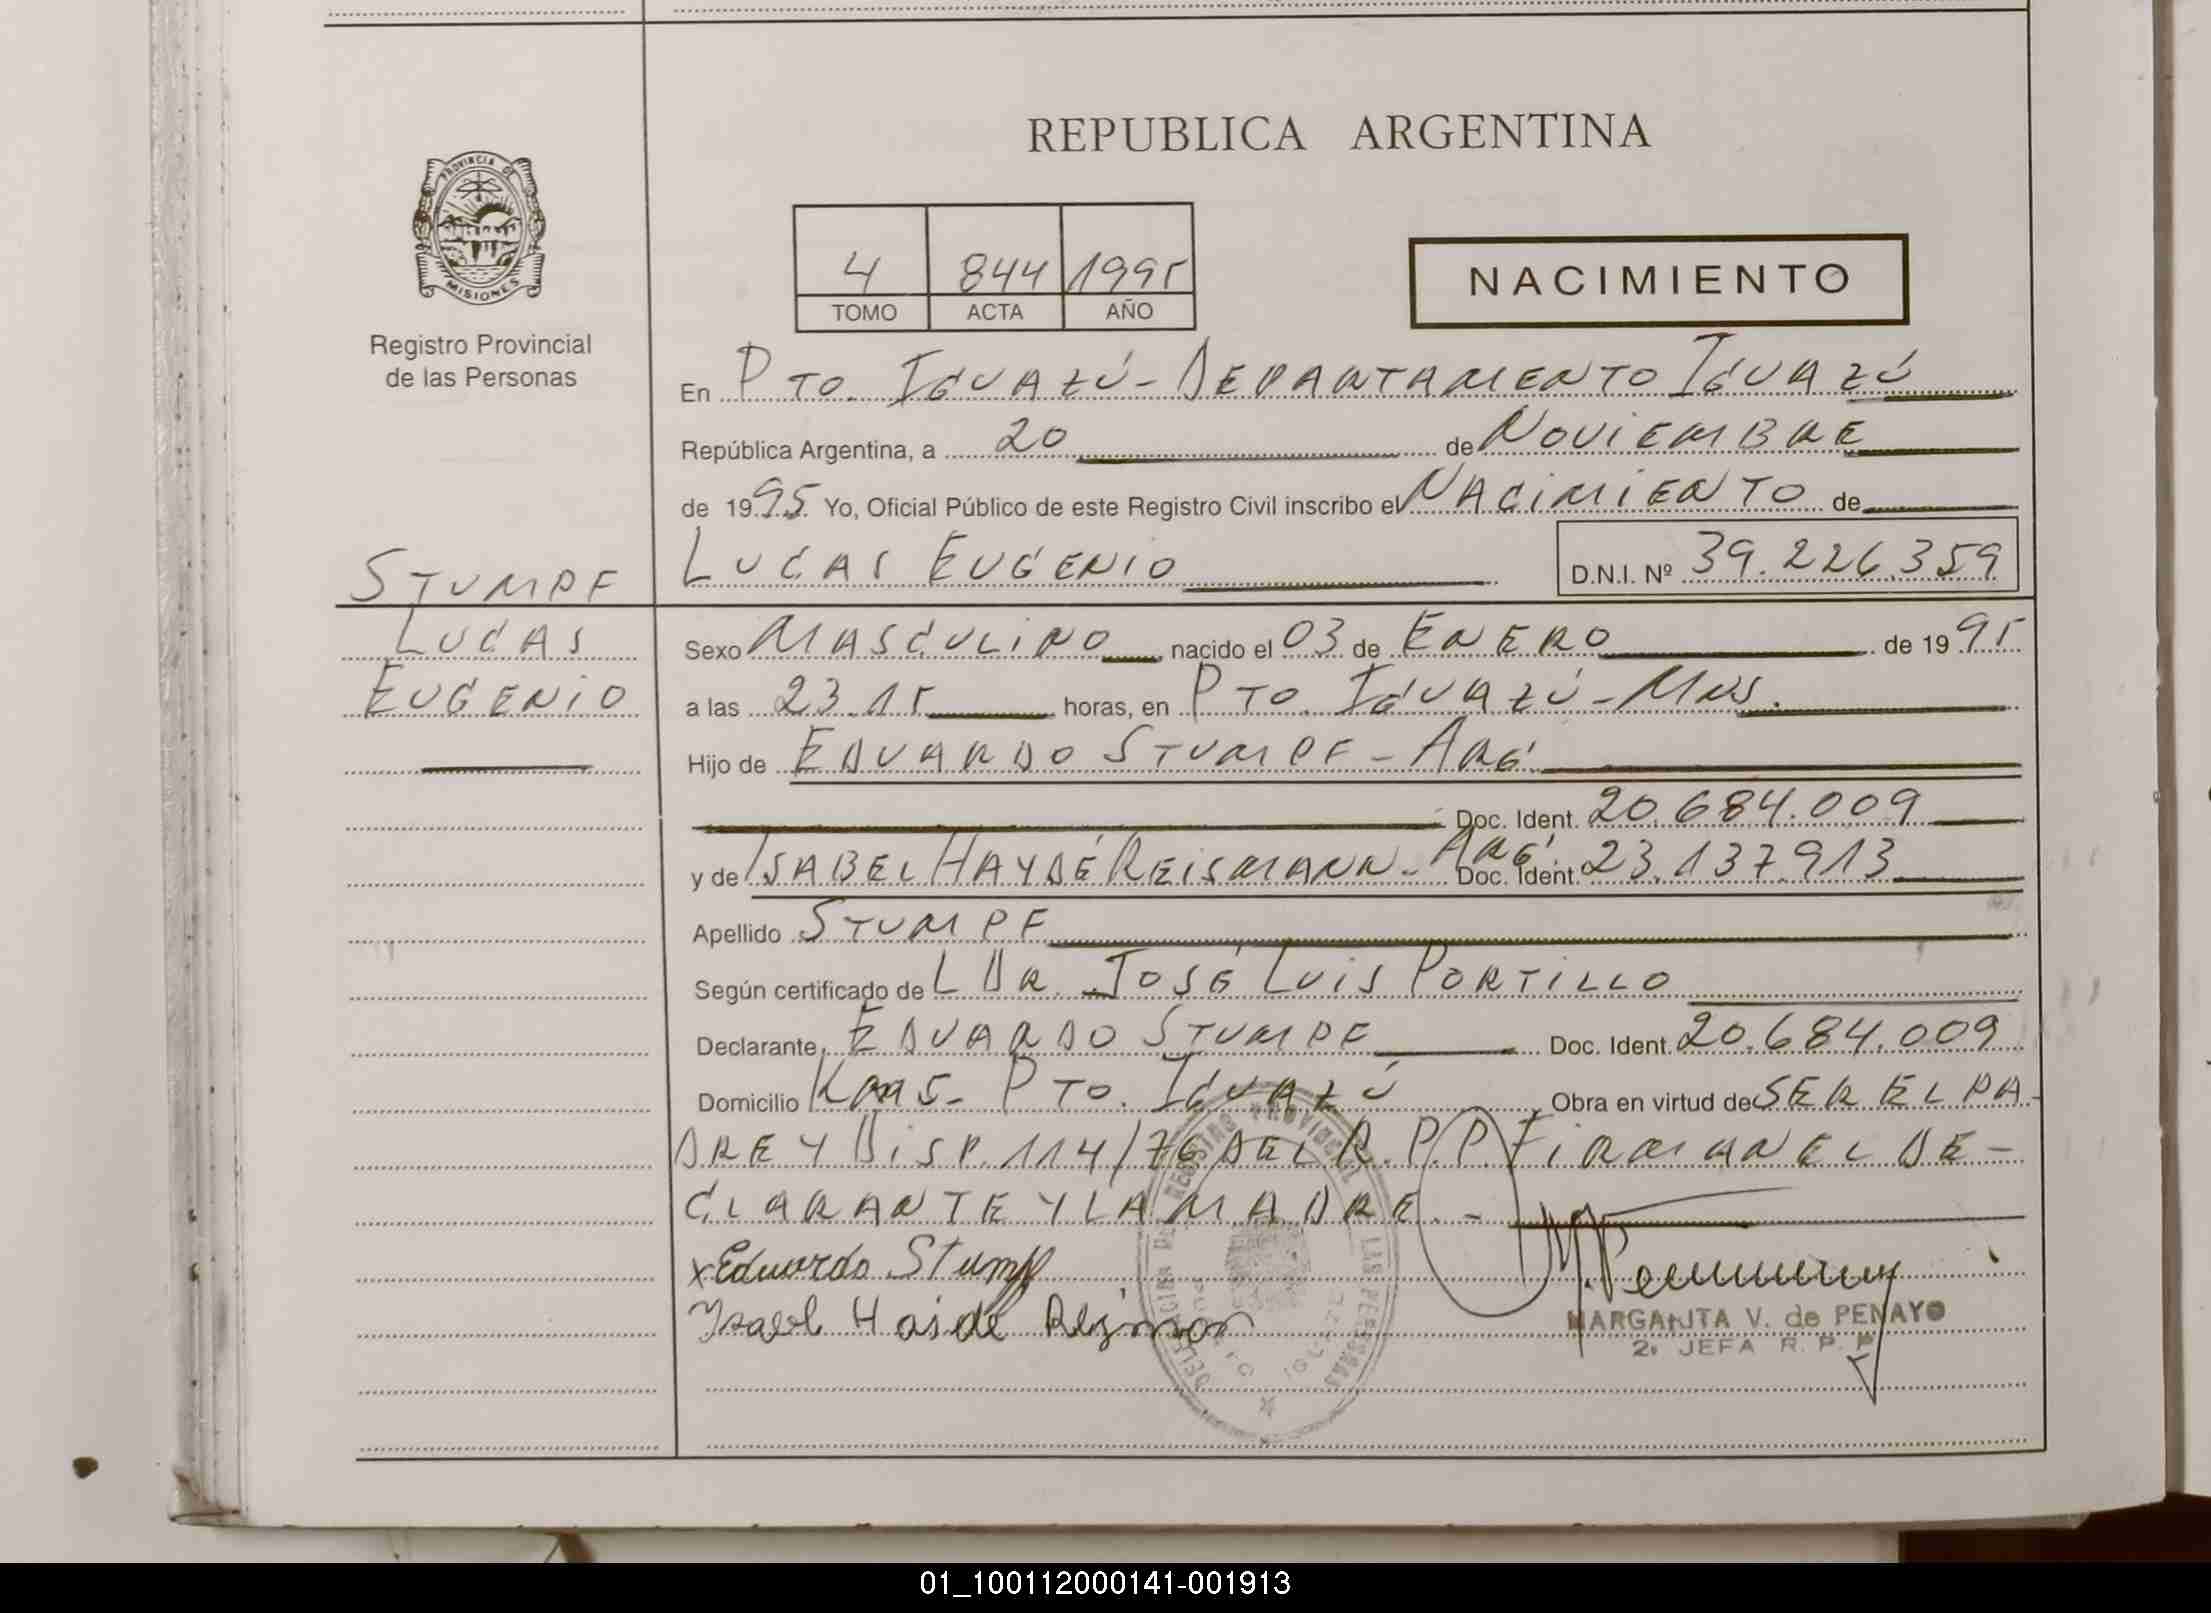 REPUBLICA ARGENTINA
PROVINCIA DE
MISIONES
Registro Provincial
de las Personas
4 844 1995
TOMO ACTA AÑO
NACIMIENTO
En PTO. IGUAZÚ - DEPARTAMENTO IGUAZÚ
República Argentina, a 20 de NOVIEMBRE
de 1995 Yo, Oficial Público de este Registro Civil inscribo el NACIMIENTO de
LUCAS EUGENIO D.N.I. Nº 39.226.359
STUMPF
LUCAS
EUGENIO
Sexo MASCULINO nacido el 03 de ENERO de 1995
a las 23.15 horas, en PTO. IGUAZÚ - MNS.
Hijo de EDUARDO STUMPF - ARG.
Doc. Ident. 20.684.009
y de ISABEL HAYDÉ REISMANN - ARG. Doc. Ident. 23.137.913
Apellido STUMPF
Según certificado de L DR. JOSÉ LUIS PORTILLO
Declarante, EDUARDO STUMPF Doc. Ident. 20.684.009
Domicilio KM 5 - PTO. IGUAZÚ, Obra en virtud de SER EL PA-
DRE Y DISP. 114/76 DEL R.P.P. FIRMAN EL DE-
CLARANTE Y LA MADRE. -
x Eduardo Stumpf
Isabel Haide
DEL REGISTRO PROVINCIAL DE LAS PERSONAS
MARGARITA V. de PENAYO
2. JEFA R. P. P.
01_100112000141-001913